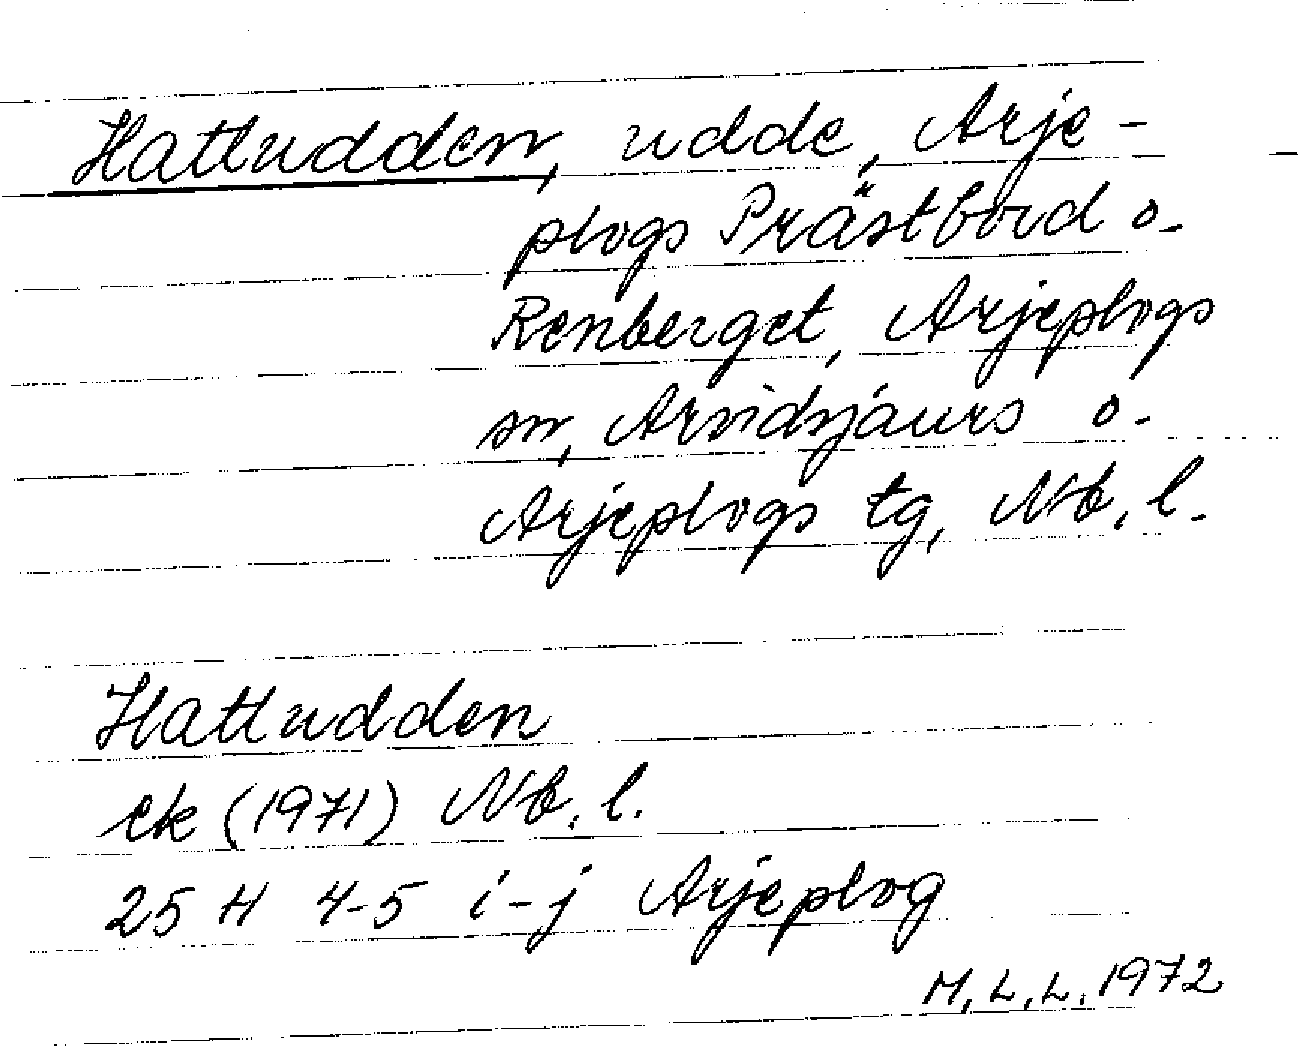 Hattudden, udde, Arje-
plogs Prästbord o.
Renberget, Arjeplogs
sn, Arvidsjaurs o.
Arjeplogs tg, Nb. l.
Hattudden
ek (1971) Nb. l.
25 H 4-5 i-j Arjeplog
M.L.L. 1972